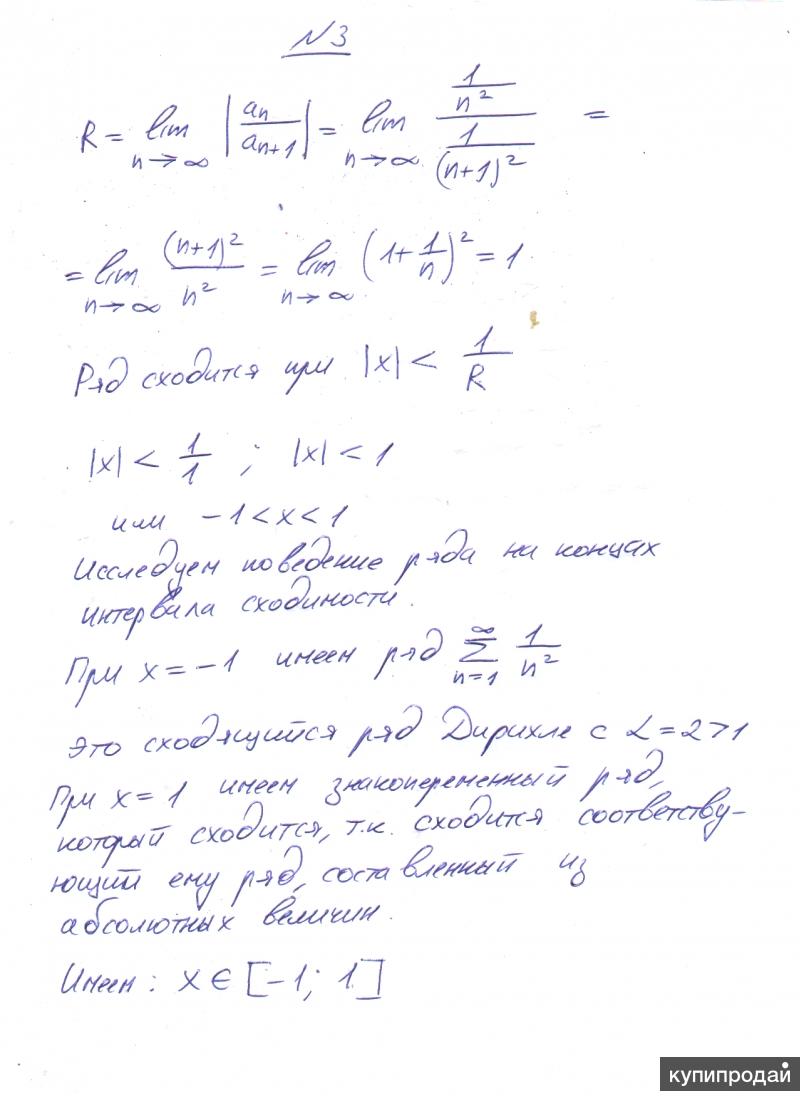 N3
R = lim n→∞ |an/an+1| = lim n→∞ (1/n²)/(1/(n+1)²) =
= lim n→∞ (n+1)²/n² = lim n→∞ (1+1/n)² = 1
Ряд сходится при |x| < 1/R
|x| < 1/1 ; |x| < 1
или -1 < x < 1
Исследуем поведение ряда на концах
интервала сходимости.
При x = -1 имеем ряд ∞ Σ n=1 1/n²
Это сходящийся ряд Дирихле с α = 2 > 1
При x = 1 имеем знакопеременный ряд,
который сходится, т.к. сходится соответству-
ющий ему ряд, составленный из
абсолютных величин.
Имеем: x ∈ [-1; 1]
купипродай